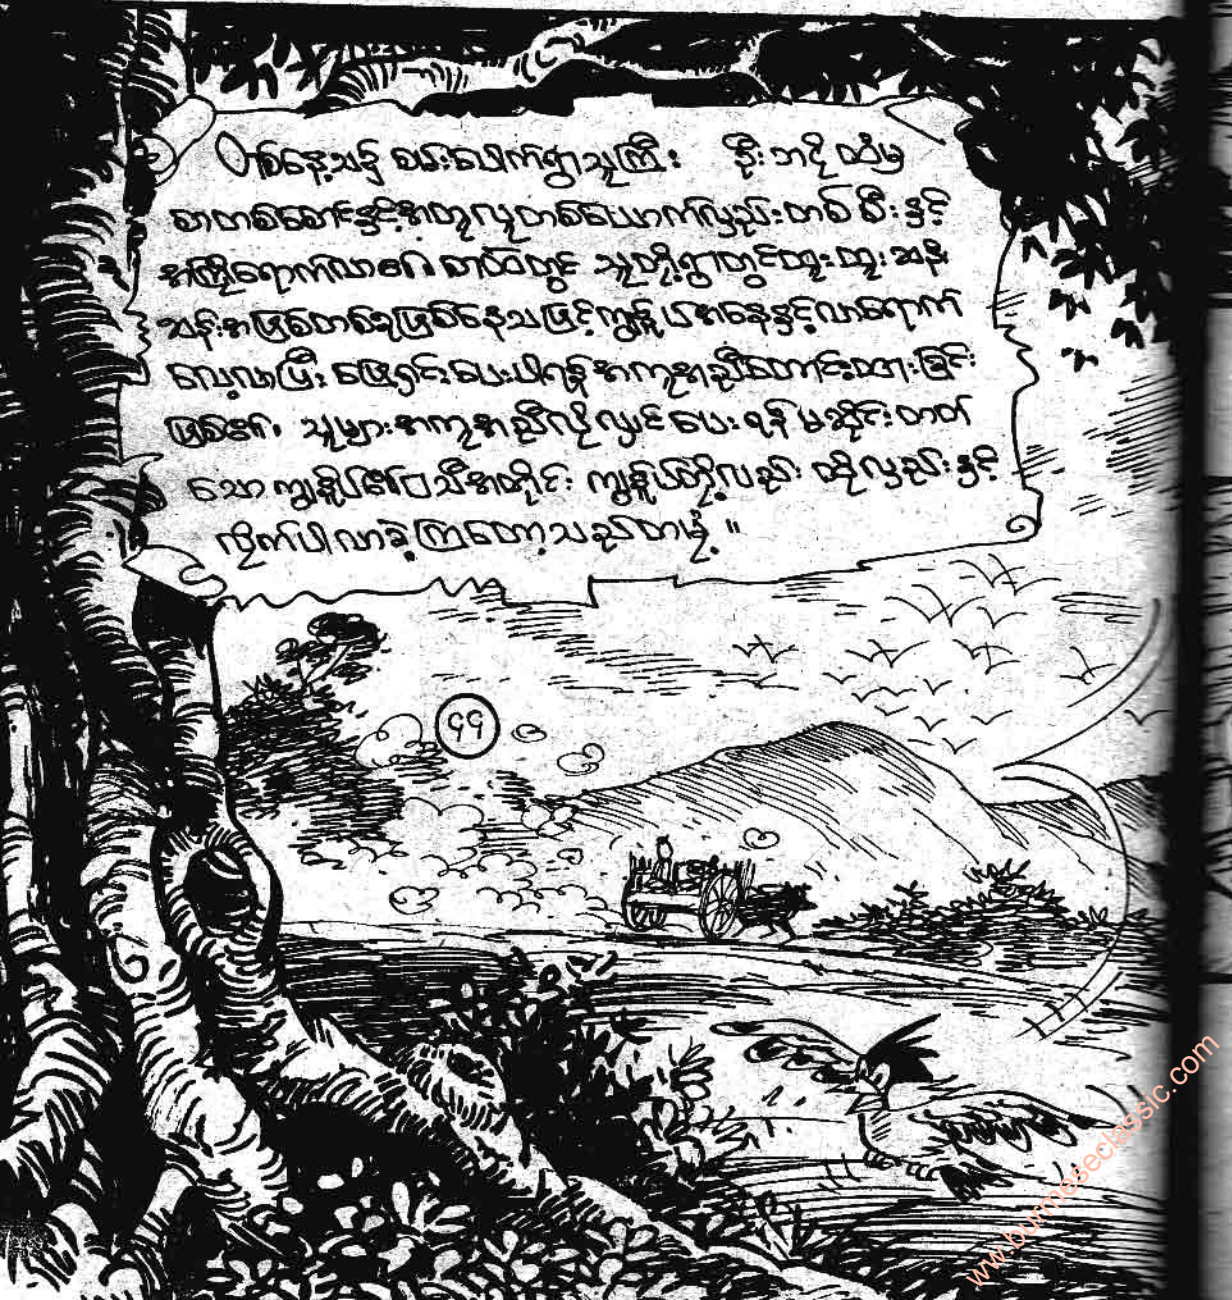 တစ်နေ့သ၌ စမ်းပေါက်ရွာသူကြီး ဦးဘငို ထံမှ
စာတစ်စောင်နှင့်အတူလူတစ်ယောက်လှည်းတစ်စီးနှင့်
အကြိုရောက်လာ၏၊ စာထဲတွင် သူတို့ရွာတွင်ထူးထူးဆန်း
ဆန်းအဖြစ်တစ်ခုဖြစ်နေသဖြင့်ကျွန်ုပ်အနေနှင့်လာရောက်
လေ့လာပြီး ဖြေရှင်းပေးပါရန်အကူအညီတောင်းထားခြင်း
ဖြစ်၏၊ သူများအကူအညီလိုလျှင်ပေးရန်မဆိုင်းတတ်
သော ကျွန်ုပ်၏ဝသီအတိုင်း ကျွန်ုပ်တို့လည်း ထိုလှည်းနှင့်
လိုက်ပါလာခဲ့ကြတော့သည်တမုံ့။
၄၄
www.burmeseclassic.com